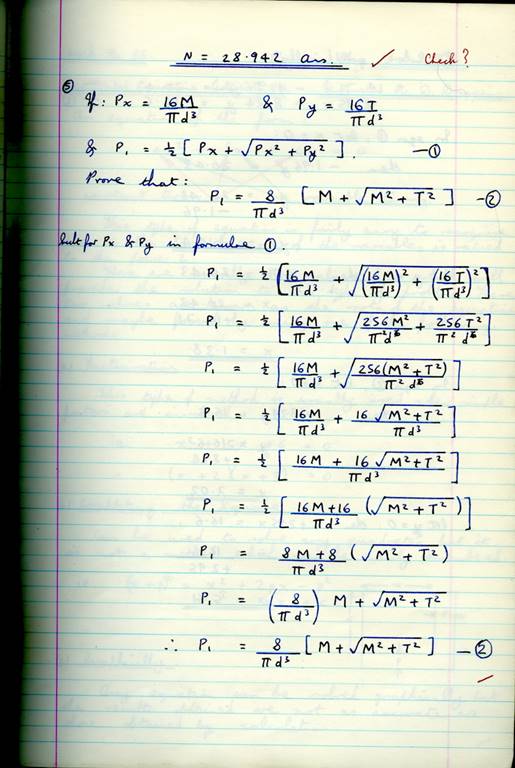 N = 28.942 ans. ✓ Check?
⑤ If: Px = 16M/πd³ & Py = 16T/πd³
& P₁ = ½ [ Px + √(Px² + Py²) ]. —①
Prove that:
P₁ = 8/πd³ [ M + √(M² + T²) ] —②
Sub for Px & Py in formulae ①.
P₁ = ½ [ 16M/πd³ + √((16M/πd³)² + (16T/πd³)²) ]
P₁ = ½ [ 16M/πd³ + √(256M²/π²d⁶ + 256T²/π²d⁶) ]
P₁ = ½ [ 16M/πd³ + √(256(M² + T²)/π²d⁶) ]
P₁ = ½ [ 16M/πd³ + 16√(M² + T²)/πd³ ]
P₁ = ½ [ 16M + 16√(M² + T²)/πd³ ]
P₁ = ½ [ 16M + 16/πd³ (√(M² + T²)) ]
P₁ = 8M + 8/πd³ (√(M² + T²))
P₁ = (8/πd³) M + √(M² + T²)
∴ P₁ = 8/πd³ [ M + √(M² + T²) ] —②